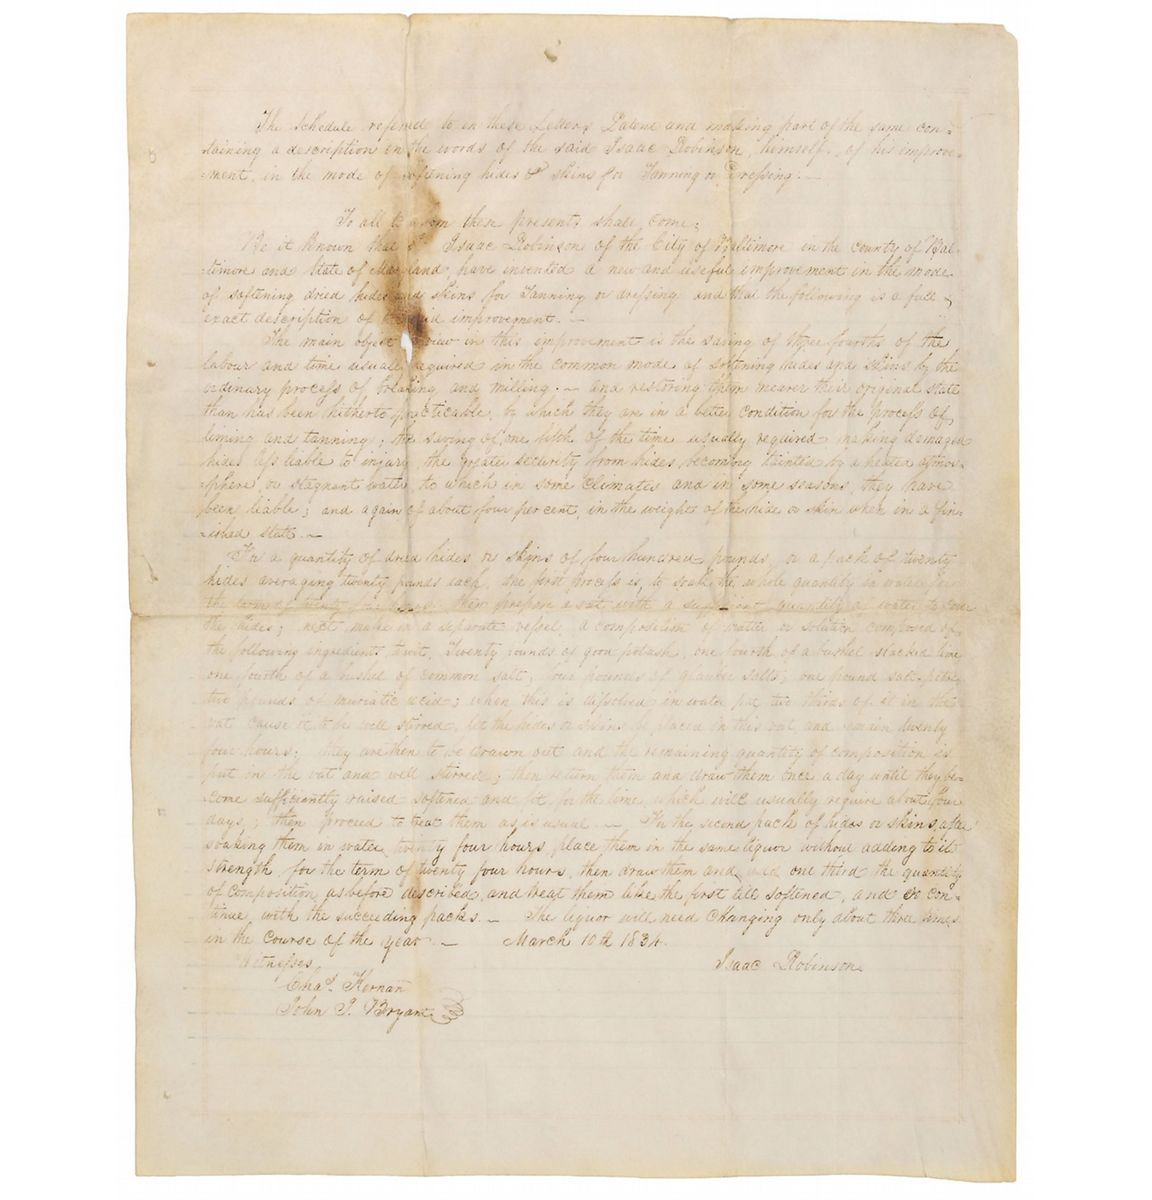 The schedule referred to in these Letters Patent and making part of the same con-
taining a description in the words of the said Isaac Robinson, himself, of his improve-
ment, in the mode of softening hides & skins for Tanning or Dressing. —
To all to whom these presents shall come;
Be it known that I Isaac Robinson of the City of Baltimore in the county of Bal-
timore and State of Maryland, have invented a new and useful improvement in the mode
of softening dried hides and skins for Tanning or dressing and that the following is a full &
exact description of the said improvement. —
The main object in view in this improvement is the saving of three fourths of the
labour and time usually required in the common mode of softening hides and skins by the
ordinary process of breaking and milling. — and restoring them nearer their original state
than has been hitherto practicable, by which they are in a better condition for the process of
liming and tanning; the saving of one fifth of the time usually required making damaged
hides less liable to injury, the greater security from hides becoming tainted by a heated atmos-
sphere or stagnant water to which in some climates and in some seasons, they have
been liable; and again of about four per cent, in the weight of the hide or skin when in a fin-
ished state. —
In a quantity of dried hides or skins of four hundred pounds, or a pack of twenty
hides averaging twenty pounds each, the first process is, to soak the whole quantity in water for
the term of twenty four hours; then prepare a vat with a sufficient quantity of water to cover
the hides; next make in a separate vessel, a composition of matter or solution composed of
the following ingredients, towit, Twenty pounds of good potash, one fourth of a bushel slacked lime
one fourth of a bushel of common salt, four pounds of glauber salts; one pound salt-petre
two pounds of muriatic acid; when this is dissolved in water put two thirds of it in the
vat cause it to be well stirred, let the hides or skins be placed in this vat and remain twenty
four hours; they are then to be drawn out and the remaining quantity of composition is
put in the vat and well stirred; then return them and draw them once a day until they be-
come sufficiently raised softened and fit for the lime, which will usually require about four
days; then proceed to treat them as is usual — In the second pack of hides or skins, after
soaking them in water twenty four hours, place them in the same liquor without adding to its
strength for the term of twenty four hours, then draw them and add one third the quantity
of composition as before described, and treat them like the first till softened, and so con-
tinue, with the succeeding packs. — The liquor will need changing only about three times
in the course of the year. — March 10th 1834.
Isaac Robinson
Witnesses
Chas. Kernan
John I. Bryant